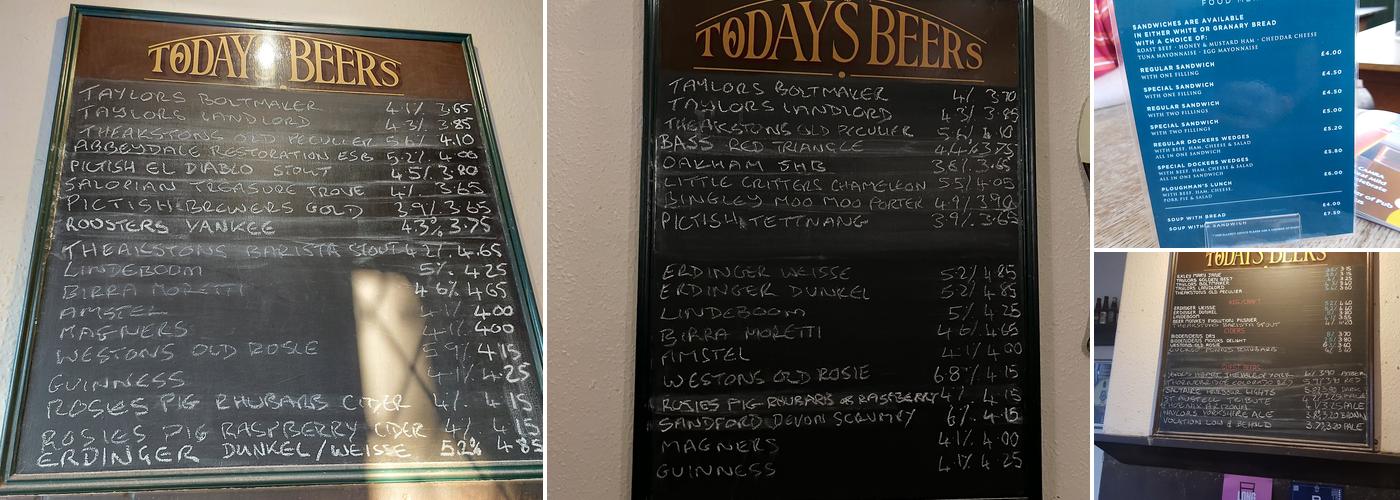 TODAY'S BEERS
TAYLORS BOLTMAKER 4.1% 3.65
TAYLORS LANDLORD 4.3% 3.85
THEAKSTONS OLD PECULIER 5.6% 4.10
ABBEYDALE RESTORATION ESB 5.2% 4.00
PICTISH EL DIABLO STOUT 4.5% 3.80
SALOPIAN TREASURE TROVE 4% 3.65
PICTISH BREWERS GOLD 3.9% 3.65
ROOSTERS YANKEE 4.3% 3.75
THEAKSTONS BARISTA STOUT 4.2% 4.65
LINDEBOOM 5% 4.25
BIRRA MORETTI 4.6% 4.65
AMSTEL 4.1% 4.00
MAGNERS 4.00
WESTONS OLD ROSIE 4.15
GUINNESS 4.1% 4.25
ROSIES PIG RHUBARB CIDER 4% 4.15
ROSIES PIG RASPBERRY CIDER 4% 4.15
ERDINGER DUNKEL/WEISSE 5.2% 4.85
TODAY'S BEERS
TAYLORS BOLTMAKER 4% 3.70
TAYLORS LANDLORD 4.3% 3.85
THEAKSTONS OLD PECULIER 5.6% 4.10
BASS RED TRIANGLE 4.4% 3.75
OAKHAM JHB 3.8% 3.65
LITTLE CRITTERS CHAMELEON 5.5% 4.05
BINGLEY MOO MOO PORTER 4.9% 3.90
PICTISH TETTNANG 3.9% 3.65
ERDINGER WEISSE 5.2% 4.85
ERDINGER DUNKEL 5.2% 4.85
LINDEBOOM 5% 4.25
BIRRA MORETTI 4.6% 4.65
AMSTEL 4.1% 4.00
WESTONS OLD ROSIE 6.8% 4.15
ROSIES PIG RHUBARB OR RASPBERRY 4% 4.15
SANDFORD DEVON SCRUMPY 6% 4.15
MAGNERS 4.1% 4.00
GUINNESS 4.1% 4.25
FOOD
SANDWICHES ARE AVAILABLE
IN EITHER WHITE OR GRANARY BREAD
WITH A CHOICE OF:
ROAST BEEF · HONEY & MUSTARD HAM · CHEDDAR CHEESE
TUNA MAYONNAISE · EGG MAYONNAISE
REGULAR SANDWICH £4.00
WITH ONE FILLING
SPECIAL SANDWICH £4.50
WITH ONE FILLING
REGULAR SANDWICH £4.50
WITH TWO FILLINGS
SPECIAL SANDWICH £5.00
WITH TWO FILLINGS
REGULAR DOCKERS WEDGES £5.20
WITH BEEF, HAM, CHEESE & SALAD
ALL IN ONE SANDWICH
SPECIAL DOCKERS WEDGES £5.80
WITH BEEF, HAM, CHEESE & SALAD
ALL IN ONE SANDWICH
PLOUGHMAN'S LUNCH £6.00
WITH BEEF, HAM, CHEESE,
PORK PIE & SALAD
SOUP WITH BREAD £4.00
SOUP WITH A SANDWICH £7.50
TODAY'S BEERS
EXLEY MARY JANE
TAYLORS GOLDEN BEST
TAYLORS BOLTMAKER
TAYLORS LANDLORD
THEAKSTONS OLD PECULIER
KEG/CRAFT
ERDINGER WEISSE
ERDINGER DUNKEL
LINDEBOOM
BEER MONKEY EVOLUTION PILSNER
THEAKSTONS BARISTA STOUT
CIDERS
BIDDENDENS DRY
BIDDENDENS MONKS DELIGHT
WESTONS OLD ROSIE
GUEST BEERS
THORNBRIDGE COLORADO RED
SALTAIRE HARBOUR LIGHTS
ST AUSTELL TRIBUTE
PHOENIX ARIZONA
NAYLORS YORKSHIRE ALE
VOCATION LO & BEHOLD
LONG